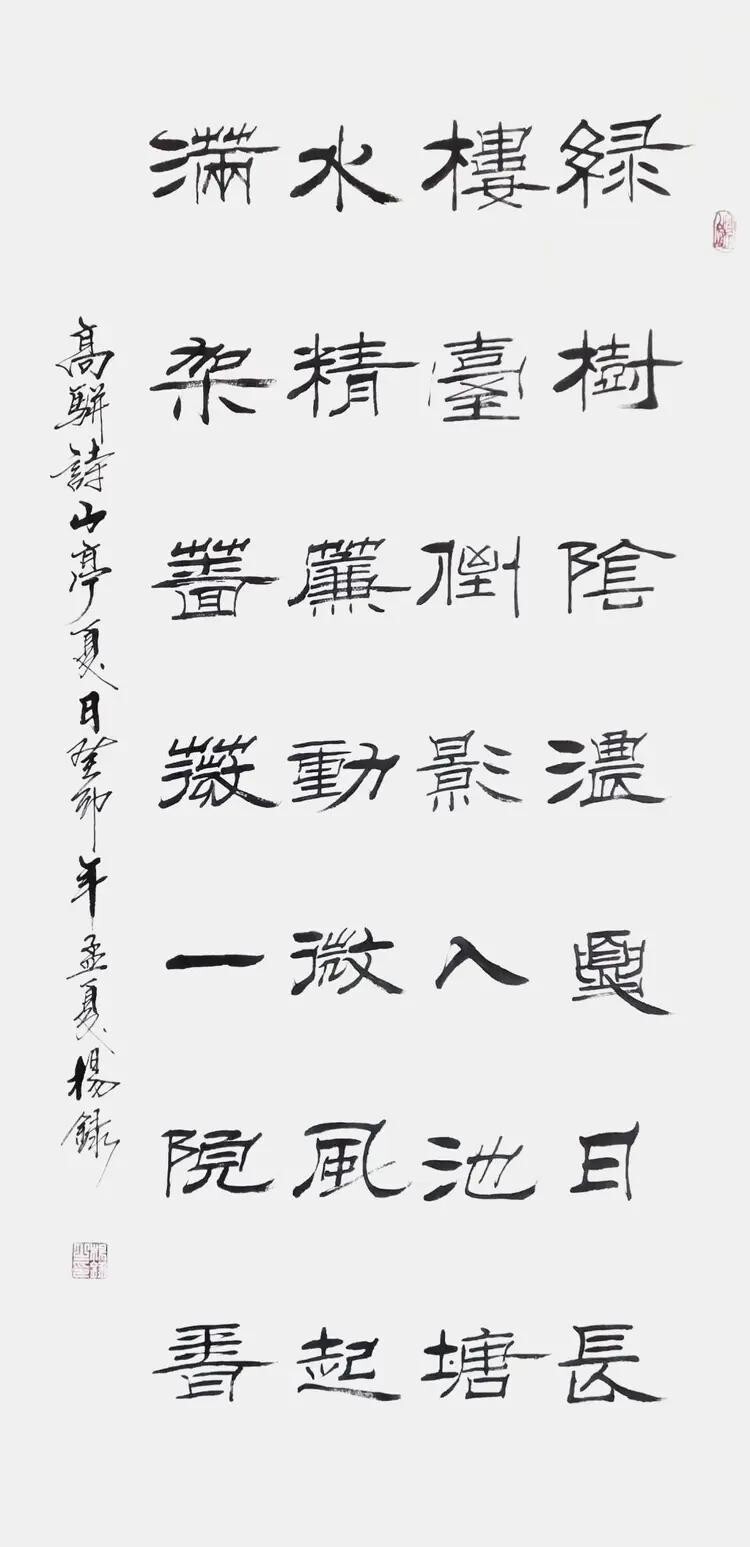 綠樹陰濃夏日長
樓臺倒影入池塘
水精簾動微風起
滿架薔薇一院香
高駢詩山亭夏日癸卯年孟夏楊錄